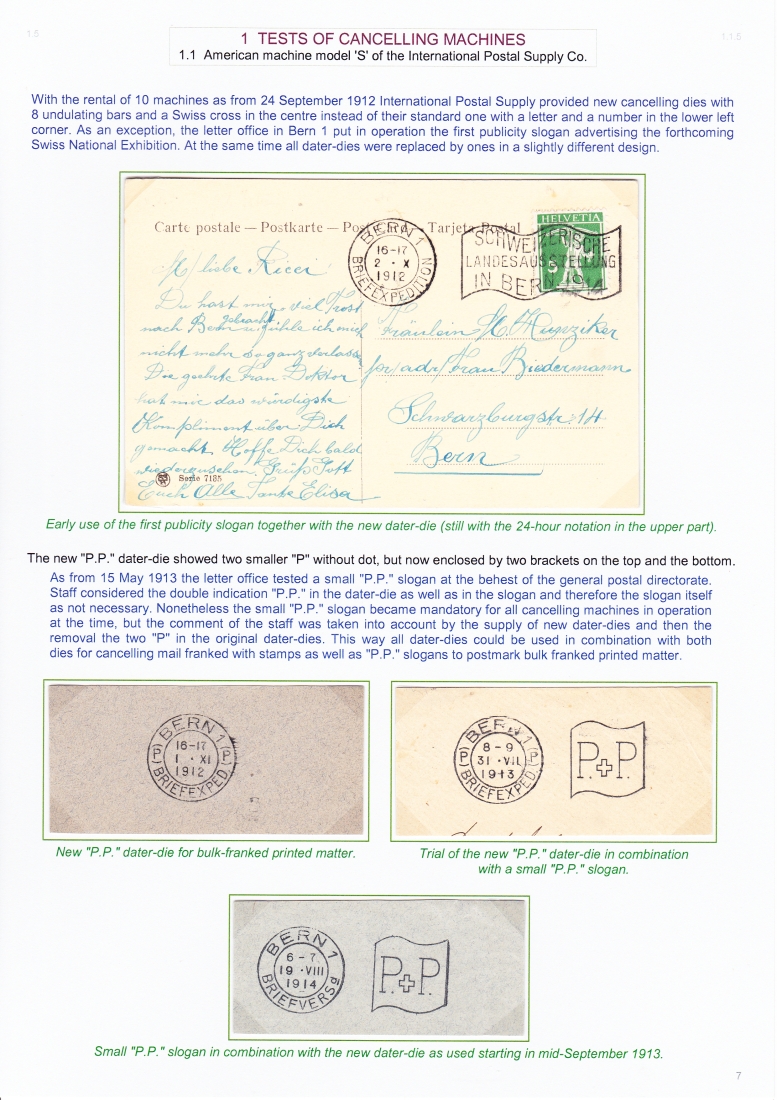 1.5
1.1.5
1 TESTS OF CANCELLING MACHINES
1.1 American machine model 'S' of the International Postal Supply Co.
With the rental of 10 machines as from 24 September 1912 International Postal Supply provided new cancelling dies with
8 undulating bars and a Swiss cross in the centre instead of their standard one with a letter and a number in the lower left
corner. As an exception, the letter office in Bern 1 put in operation the first publicity slogan advertising the forthcoming
Swiss National Exhibition. At the same time all dater-dies were replaced by ones in a slightly different design.
Carte postale — Postkarte — Tarjeta Postal
BERN 1
16-17
2 · X
1912
BRIEFEXPEDITION
HELVETIA
5
SCHWEIZERISCHE
LANDESAUSSTELLUNG
IN BERN 1914
liebe
Du hast mir viel Trost
gebracht
nach Bern u. fühle ich mich
nicht mehr so ganz verlassen
Die geehrte Frau Doktor
hat mir das würdigste
Kompliment über Dich
gemacht. Hoffe Dich bald
wiederzusehen. Grüß Gott
Euch Alle Tante Elisa
Serie 7135
Fräulein H. Hunziker
per adr/ Frau Biedermann
Schwarzburgstr. 14
Bern
Early use of the first publicity slogan together with the new dater-die (still with the 24-hour notation in the upper part).
The new "P.P." dater-die showed two smaller "P" without dot, but now enclosed by two brackets on the top and the bottom.
As from 15 May 1913 the letter office tested a small "P.P." slogan at the behest of the general postal directorate.
Staff considered the double indication "P.P." in the dater-die as well as in the slogan and therefore the slogan itself
as not necessary. Nonetheless the small "P.P." slogan became mandatory for all cancelling machines in operation
at the time, but the comment of the staff was taken into account by the supply of new dater-dies and then the
removal the two "P" in the original dater-dies. This way all dater-dies could be used in combination with both
dies for cancelling mail franked with stamps as well as "P.P." slogans to postmark bulk franked printed matter.
BERN 1
16-17
(P) 1 · XI (P)
1912
BRIEFEXPED.
BERN 1
8-9
(P) 31 · VII (P)
1913
BRIEFEXPED.
P.P.
New "P.P." dater-die for bulk-franked printed matter.
Trial of the new "P.P." dater-die in combination
with a small "P.P." slogan.
BERN 1
6-7
19 · VIII
1914
BRIEFVERSd
P.P.
Small "P.P." slogan in combination with the new dater-die as used starting in mid-September 1913.
7